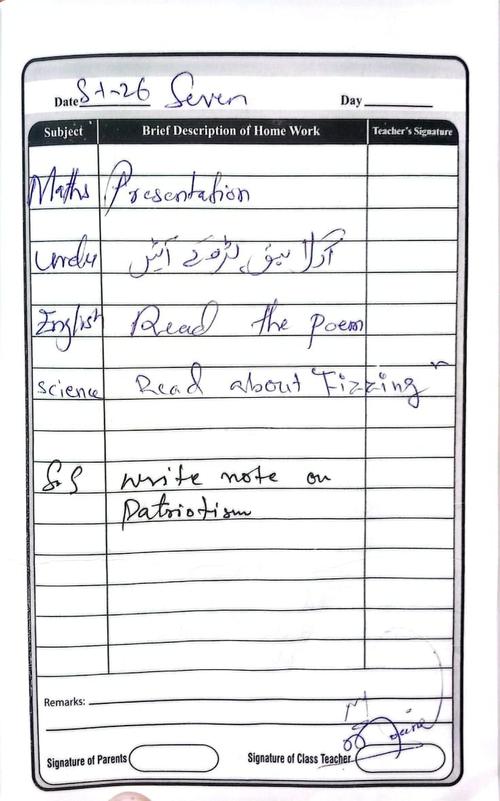 Date 8-1-26 Seven Day
Subject Brief Description of Home Work Teacher's Signature
Maths Presentation
Urdu اگلا سبق پڑھ کے آئیں
English Read the poem
Science Read about "Fizzing"
S.S write note on
Patriotism
Remarks:
Signature of Parents Signature of Class Teacher